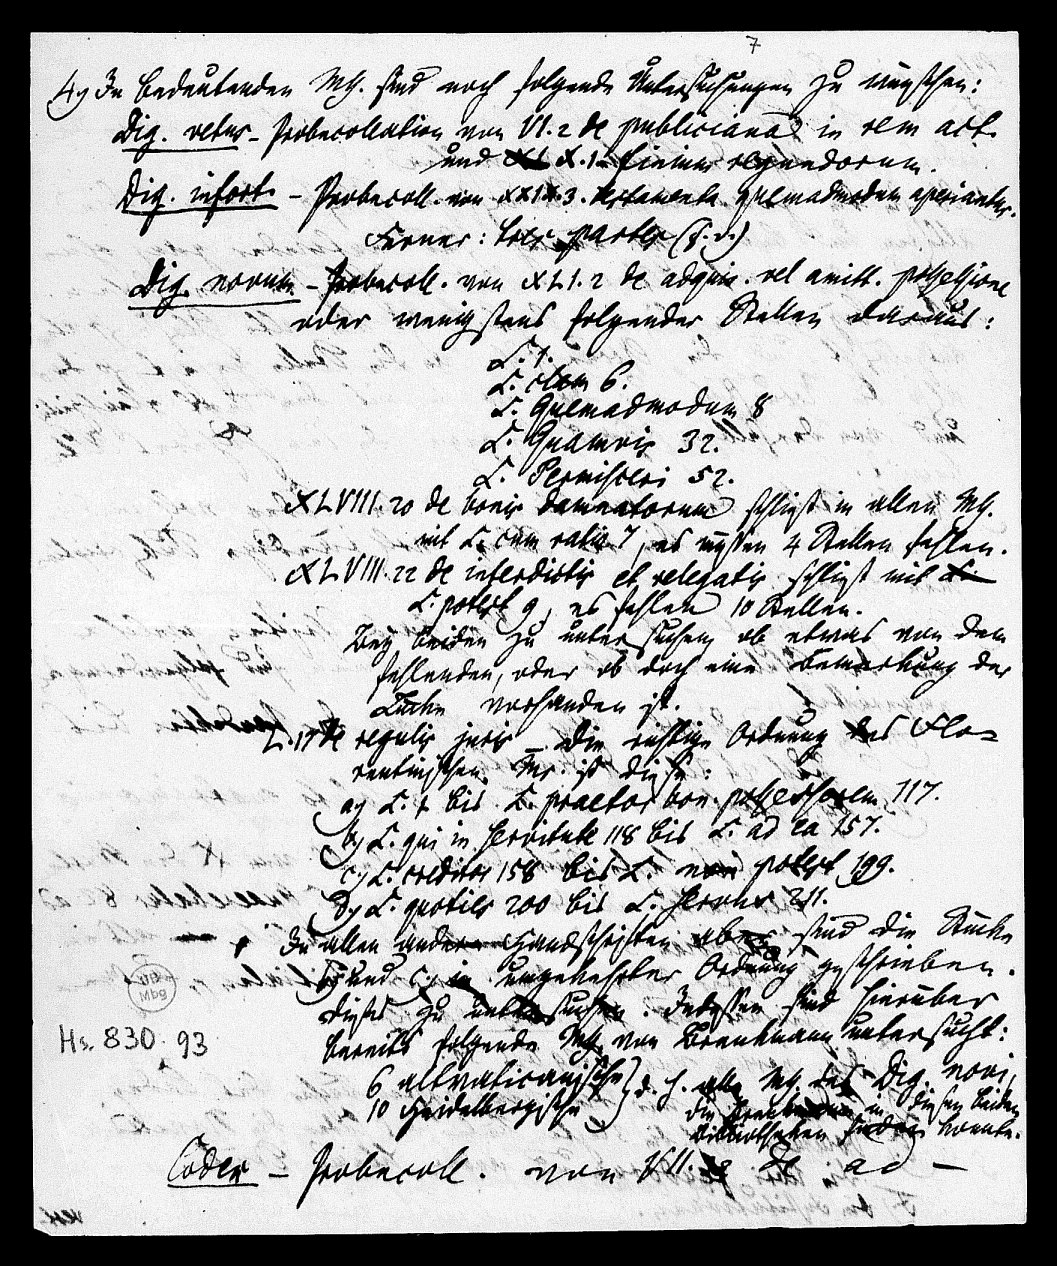 7
4) In bedeutenden Mß. sind noch folgende Untersuchungen zu wünschen:
Dig. vetus – Probecollation von VI. 2 de publiciana in rem act.
und X. 1. finium regundorum.
Dig. infort. – Probecoll. von XXIX. 3. testamenta quemadmodum aperiantur.
Ferner: tres partes (s. d.)
Dig. novum – Probecoll. von XLI. 2 de adquir. vel amitt. possessione
oder wenigstens folgender Stellen daraus:
L. 1.
L. clam 6.
L. Quemadmodum 8
L. Quamvis 32.
L. Permisceri 52.
XLVIII. 20 de bonis damnatorum schließt in allen Mß.
mit L. cum ratio 7, es müssen 4 Stellen fehlen.
XLVIII. 22 de interdictis et relegatis schließt mit L.
L. potest 9, es fehlen 10 Stellen.
Bey beiden zu untersuchen ob etwas von dem
fehlenden, oder ob doch eine Bemerkung der
Lücke vorhanden ist.
L. 17 de regulis juris – Die richtige Ordnung des Flo=
rentinischen Ms. ist diese:
a) L. 1 bis L. praetor bon. possessorem 117.
b) L. qui in servitute 118 bis L. ad ea 157.
c) L. creditor 158 bis L. non potest 199.
d) L. quoties 200 bis L. servus 211.
In allen andern Handschriften aber sind die Stücke
b) und c) in umgekehrter Ordnung geschrieben.
Dieses zu untersuchen. Indessen sind hierüber
bereits folgende Mß. von Brenkmann untersucht:
6 altvaticanische
10 Heidelbergische } d. h. alle Mß. des Dig. novi,
die Brenkmann in diesen beiden
Bibliotheken finden konnte.
Codex – Probecoll. von VII. de ad –
UB
Mbg
Hs. 830 93